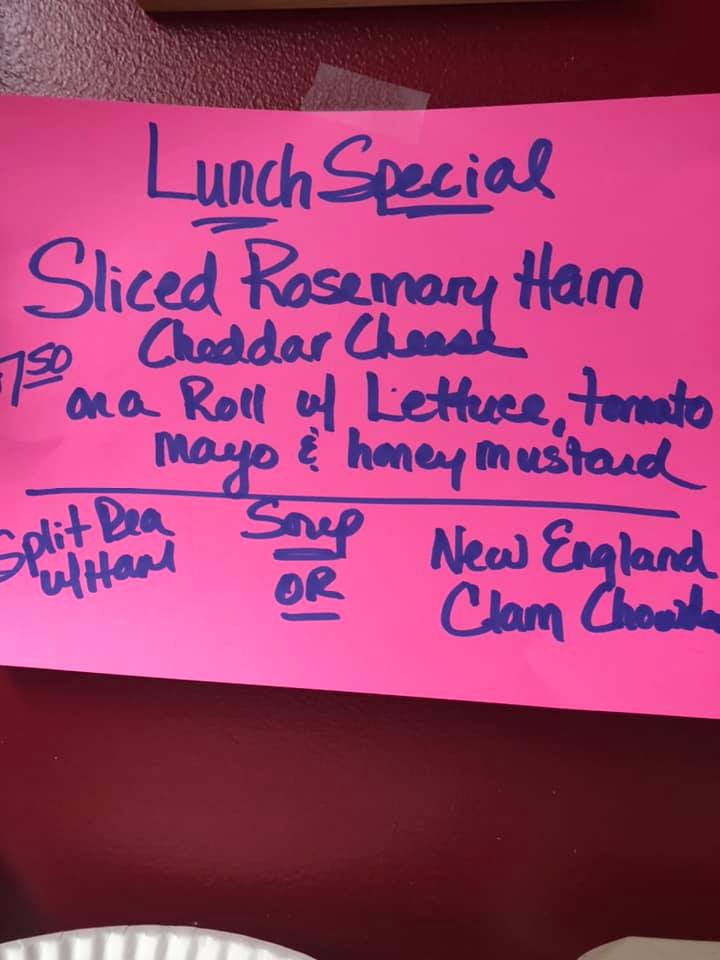 Lunch Special
Sliced Rosemary Ham
Cheddar Cheese
7.50
on a Roll w/ Lettuce, tomato
mayo & honey mustard
Split Pea Soup New England
w/ Ham OR Clam Chowde